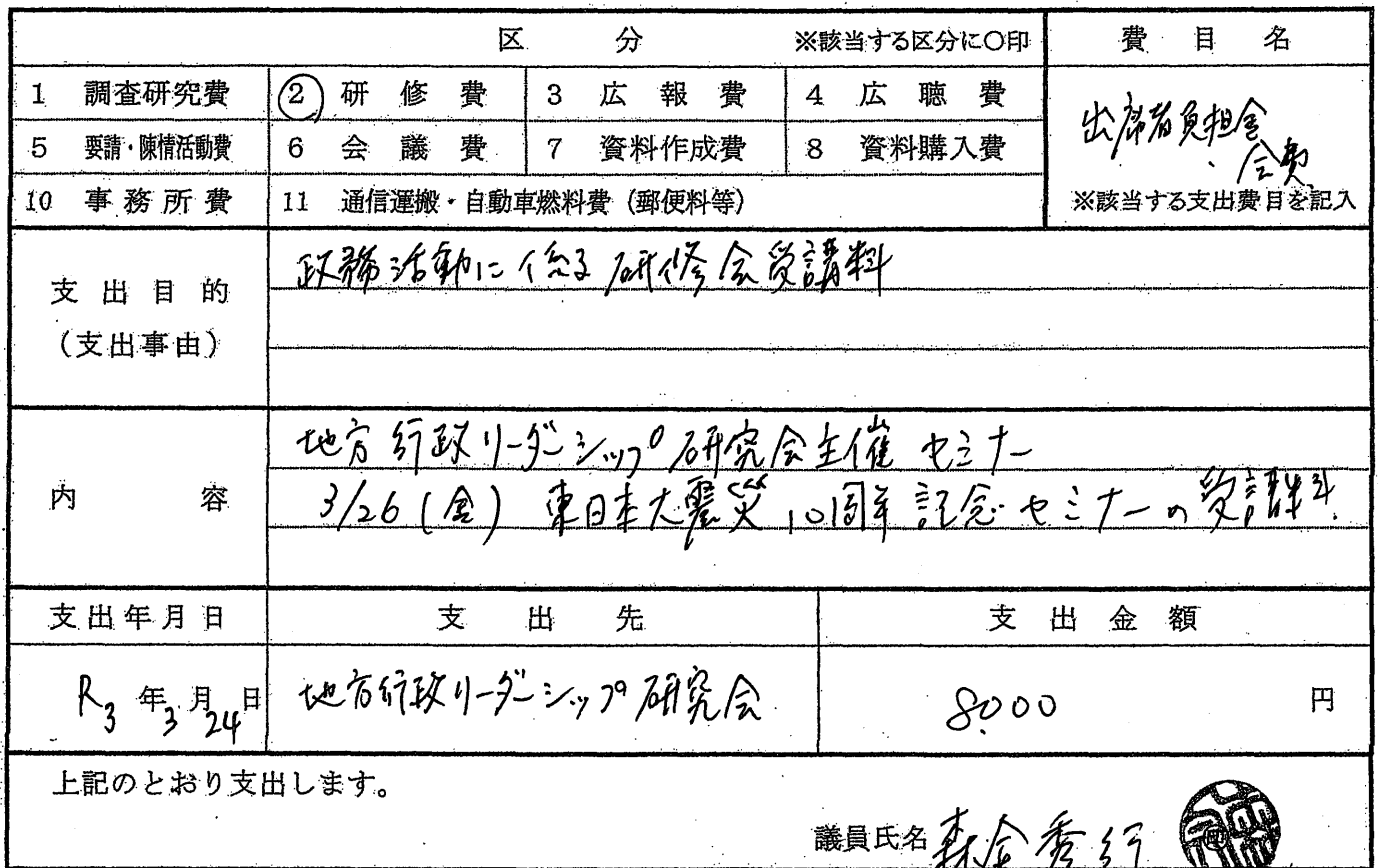 区 分 ※該当する区分に○印 費 目 名
1 調査研究費 2 研修費 3 広報費 4 広聴費
出席者負担金
・会費
5 要請・陳情活動費 6 会議費 7 資料作成費 8 資料購入費
10 事務所費 11 通信運搬・自動車燃料費（郵便料等） ※該当する支出費目を記入
支出目的
（支出事由）
政務活動に係る研修会受講料
内 容
地方行政リーダーシップ研究会主催 セミナー
3/26(金) 東日本大震災10周年記念セミナーの受講料
支出年月日 支 出 先 支 出 金 額
R3年3月24日 地方行政リーダーシップ研究会 8,000 円
上記のとおり支出します。
議員氏名 秀行